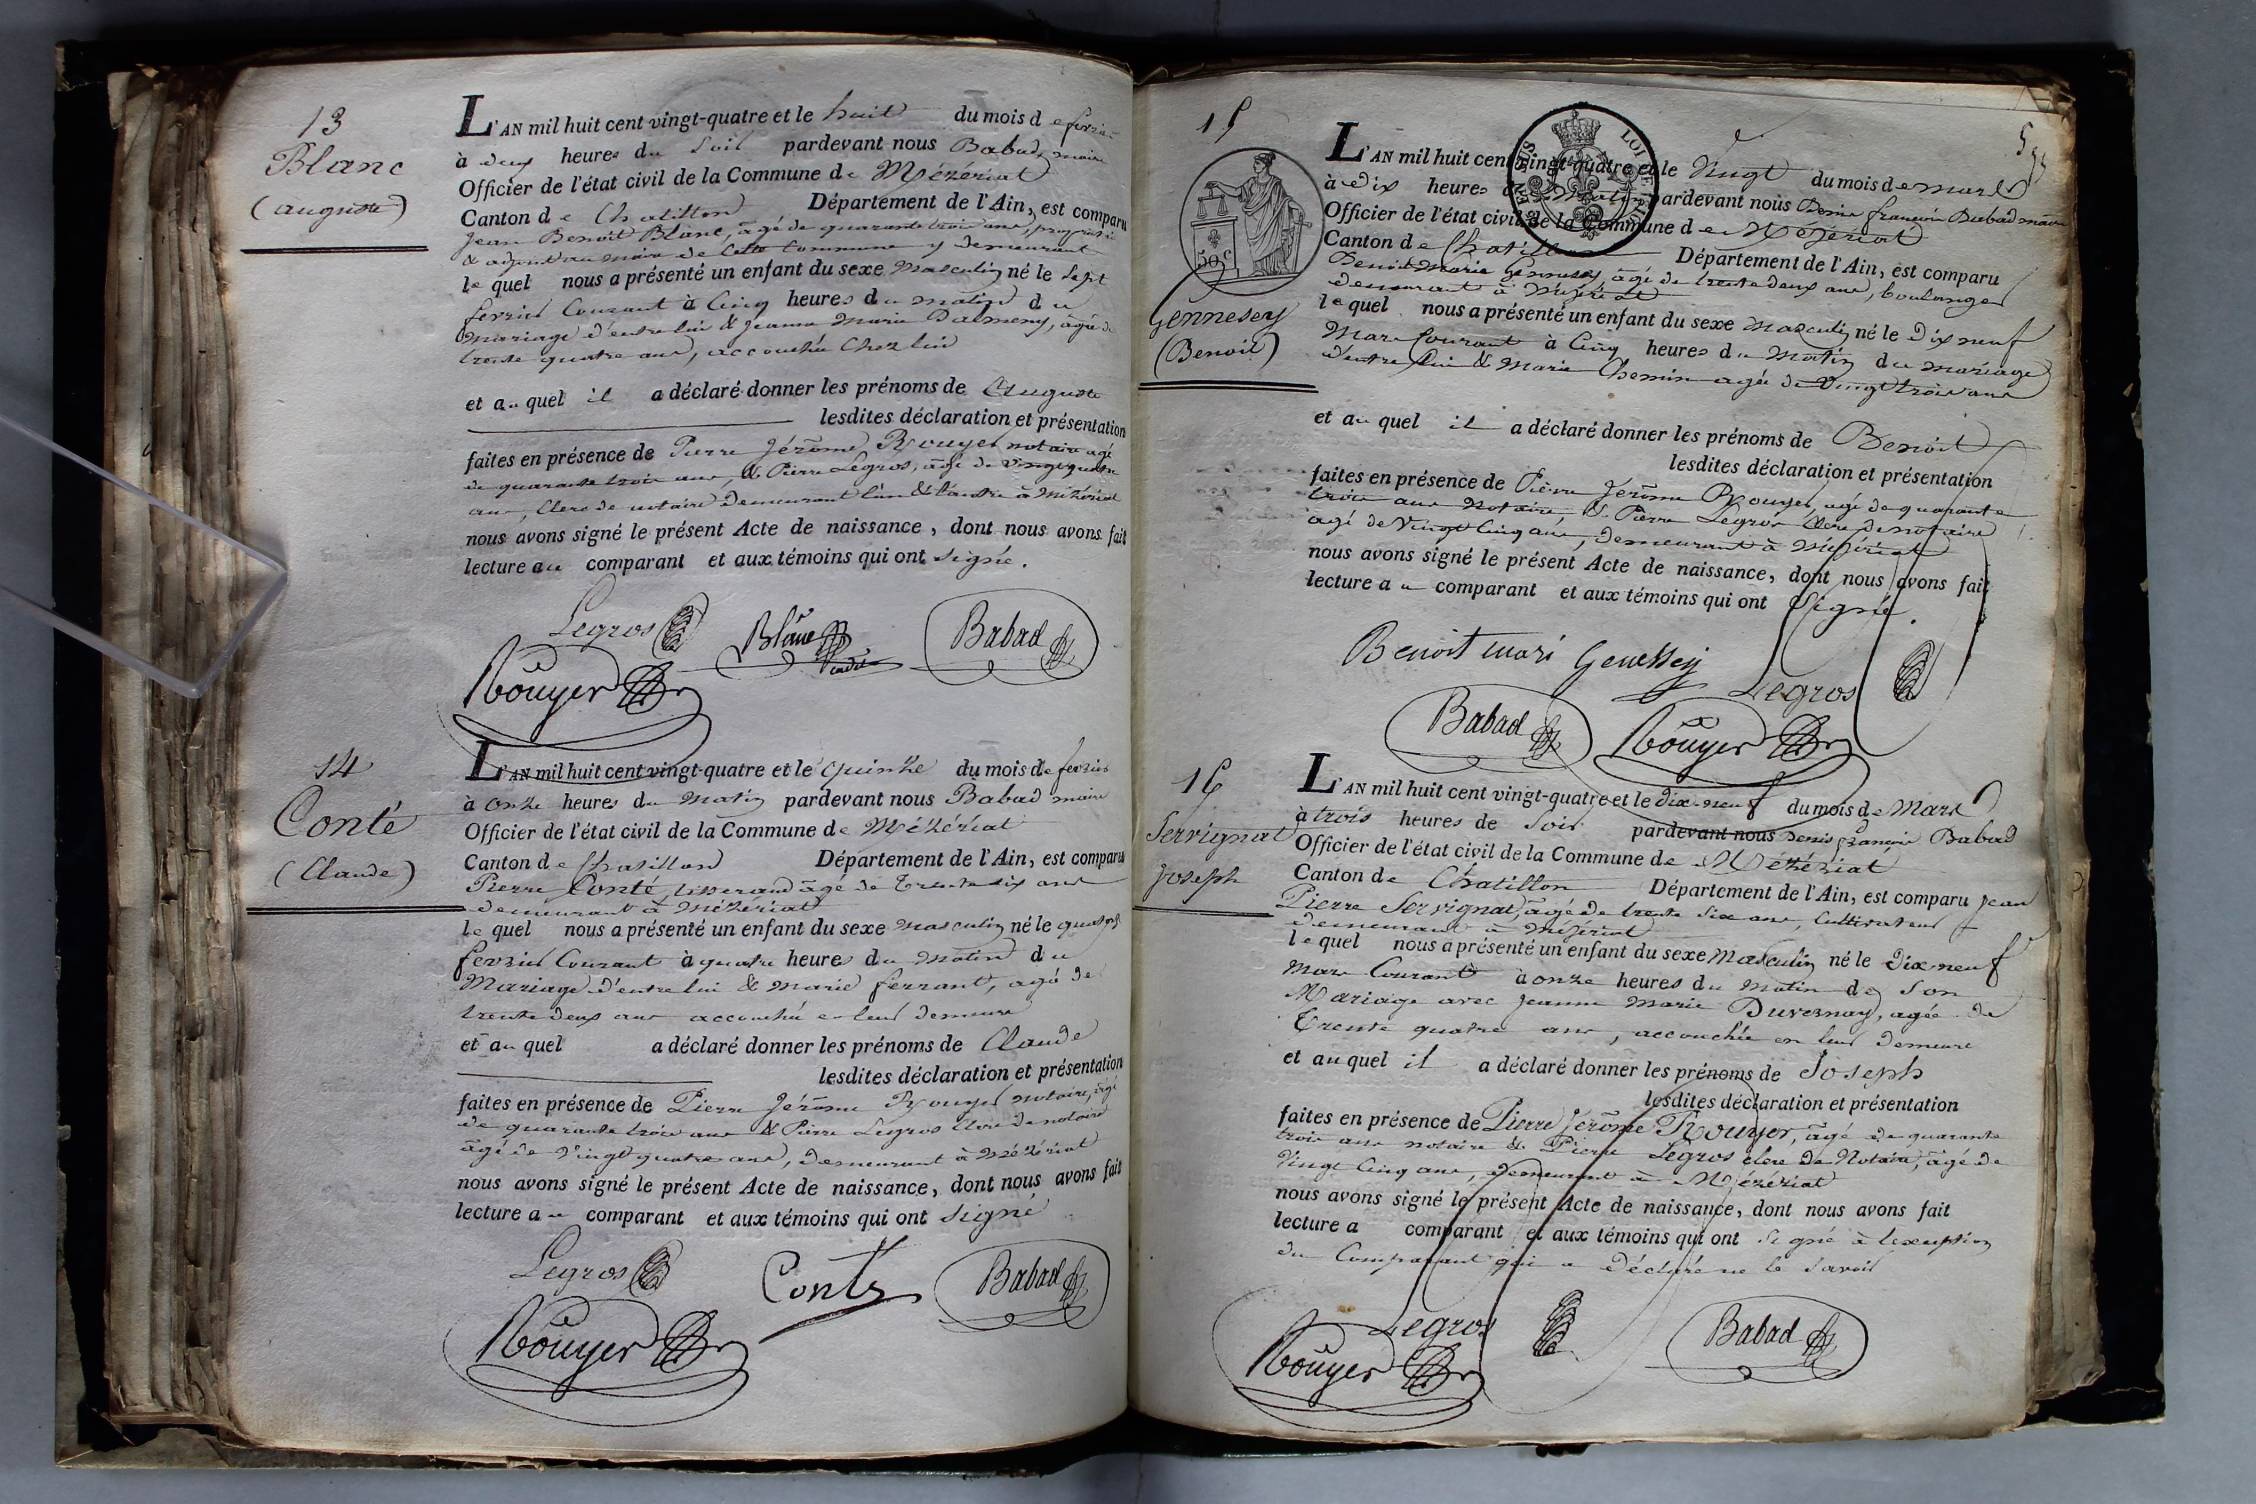 13
Blanc
(auguste)
L'AN mil huit cent vingt-quatre et le huit du mois de fevrier
à deux heures du Soir pardevant nous Babad maire
Officier de l'état civil de la Commune de Mézériat
Canton de Chatillon Département de l'Ain, est comparu
Jean Benoit Blanc, âgé de quarante trois ans, propriétaire
& adjoint au maire de Cette Commune y demeurant
lequel nous a présenté un enfant du sexe masculin né le Sept
fevrier Courant à Cinq heures du matin du
Mariage d'entre lui & Jeanne Marie Dalmeny, âgée de
trente quatre ans, accouchée Chez lui
et auquel il a déclaré donner les prénoms de Auguste
lesdites déclaration et présentation
faites en présence de Pierre Jérôme Rouyer notaire agé
de quarante trois ans, & Pierre Legros, âgé de vingt quatre
ans, Clerc de notaire demeurant l'un & l'autre à Mézériat
nous avons signé le présent Acte de naissance, dont nous avons fait
lecture au comparant et aux témoins qui ont signé.
Legros Blanc Babad
Rouyer
14
Conté
(Claude)
L'AN mil huit cent vingt-quatre et le quinze du mois de fevrier
à onze heures du matin pardevant nous Babad maire
Officier de l'état civil de la Commune de Mézériat
Canton de Chatillon Département de l'Ain, est comparu
Pierre Conté, tisserand âgé de Trente six ans
demeurant à Mézériat
lequel nous a présenté un enfant du sexe masculin né le quatorze
fevrier Courant à quatre heures du matin du
Mariage d'entre lui & marie ferrant, agé de
trente deux ans accouchée en leur demeure
et auquel a déclaré donner les prénoms de Claude
lesdites déclaration et présentation
faites en présence de Pierre Jérôme Rouyer notaire, âgé
de quarante trois ans & Pierre Legros Clerc de notaire
âgé de Vingt quatre ans, demeurant à Mézériat
nous avons signé le présent Acte de naissance, dont nous avons fait
lecture au comparant et aux témoins qui ont signé
Legros Conté Babad
Rouyer
15
50 C
Gennesey
(Benoit)
L'AN mil huit cent vingt-quatre et le Vingt du mois de mars
à Dix heures du Matin pardevant nous Denis françois Babad maire
Officier de l'état civil de la Commune de Mézériat
Canton de Chatillon Département de l'Ain, est comparu
Benoit Marie Gennesey âgé de trente deux ans, boulanger
demeurant à Mézériat
lequel nous a présenté un enfant du sexe masculin né le Dix neuf
Mars Courant à Cinq heures du Matin du mariage
d'entre lui & Marie Chemin agée de Vingt trois ans
et auquel il a déclaré donner les prénoms de Benoit
lesdites déclaration et présentation
faites en présence de Pierre Jerôme Rouyer, agé de quarante
trois ans Notaire & Pierre Legros Clerc de notaire
agé de Vingt Cinq ans, demeurant à Mézériat
nous avons signé le présent Acte de naissance, dont nous avons fait
lecture au comparant et aux témoins qui ont Signé.
Benoit mari Genessey
Legros
Babad Rouyer
16
Servignat
Joseph
L'AN mil huit cent vingt-quatre et le dix-neuf du mois de Mars
à trois heures de Soir pardevant nous Denis françois Babad
Officier de l'état civil de la Commune de Mézériat
Canton de Chatillon Département de l'Ain, est comparu Jean
Pierre Servignat, âgé de trente Six ans, Cultivateur
demeurant à Mézériat
lequel nous a présenté un enfant du sexe Masculin né le Dix neuf
Mars Courant à onze heures du matin de Son
Mariage avec Jeanne Marie Duvernay, agée de
Trente quatre ans, accouchée en leur demeure
et auquel il a déclaré donner les prénoms de Joseph
lesdites déclaration et présentation
faites en présence de Pierre Jérôme Rouyer, âgé de quarante
trois ans notaire & Pierre Legros clerc de Notaire, âgé de
Vingt Cinq ans, demeurant à Mézériat
nous avons signé le présent Acte de naissance, dont nous avons fait
lecture a comparant et aux témoins qui ont signé à lexception
du Comparant qui a déclaré ne le savoir
Legros Babad
Rouyer